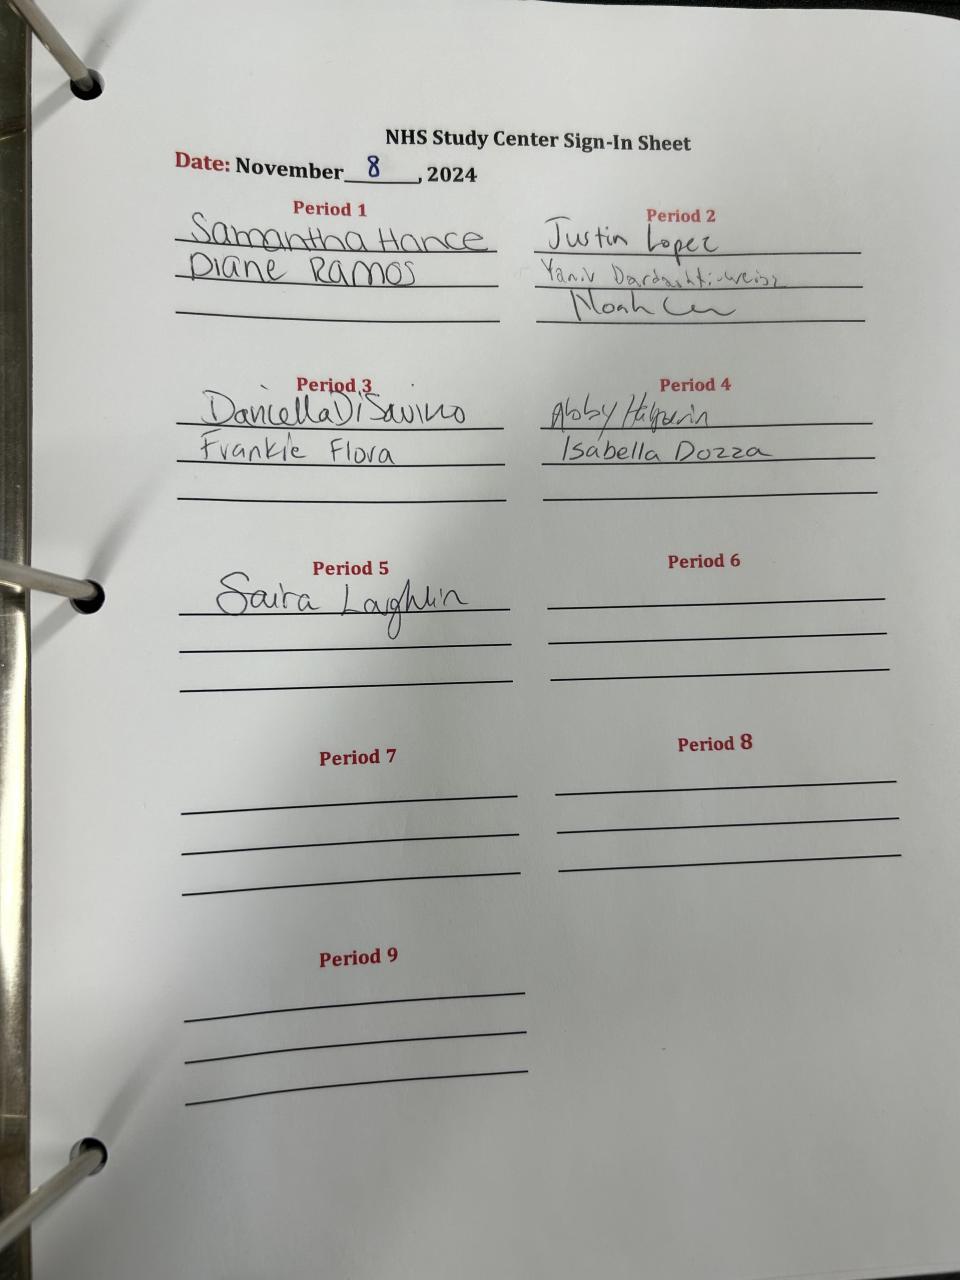 NHS Study Center Sign-In Sheet
Date: November 8, 2024
Period 1
Samantha Hance
Diane Ramos
Period 2
Justin Lopez
Yaniv Dardashti-Weisz
Noah
Period 3
Daniella DiSavino
Frankie Flora
Period 4
Abby
Isabella Dozza
Period 5
Saira Laghlin
Period 6
Period 7
Period 8
Period 9